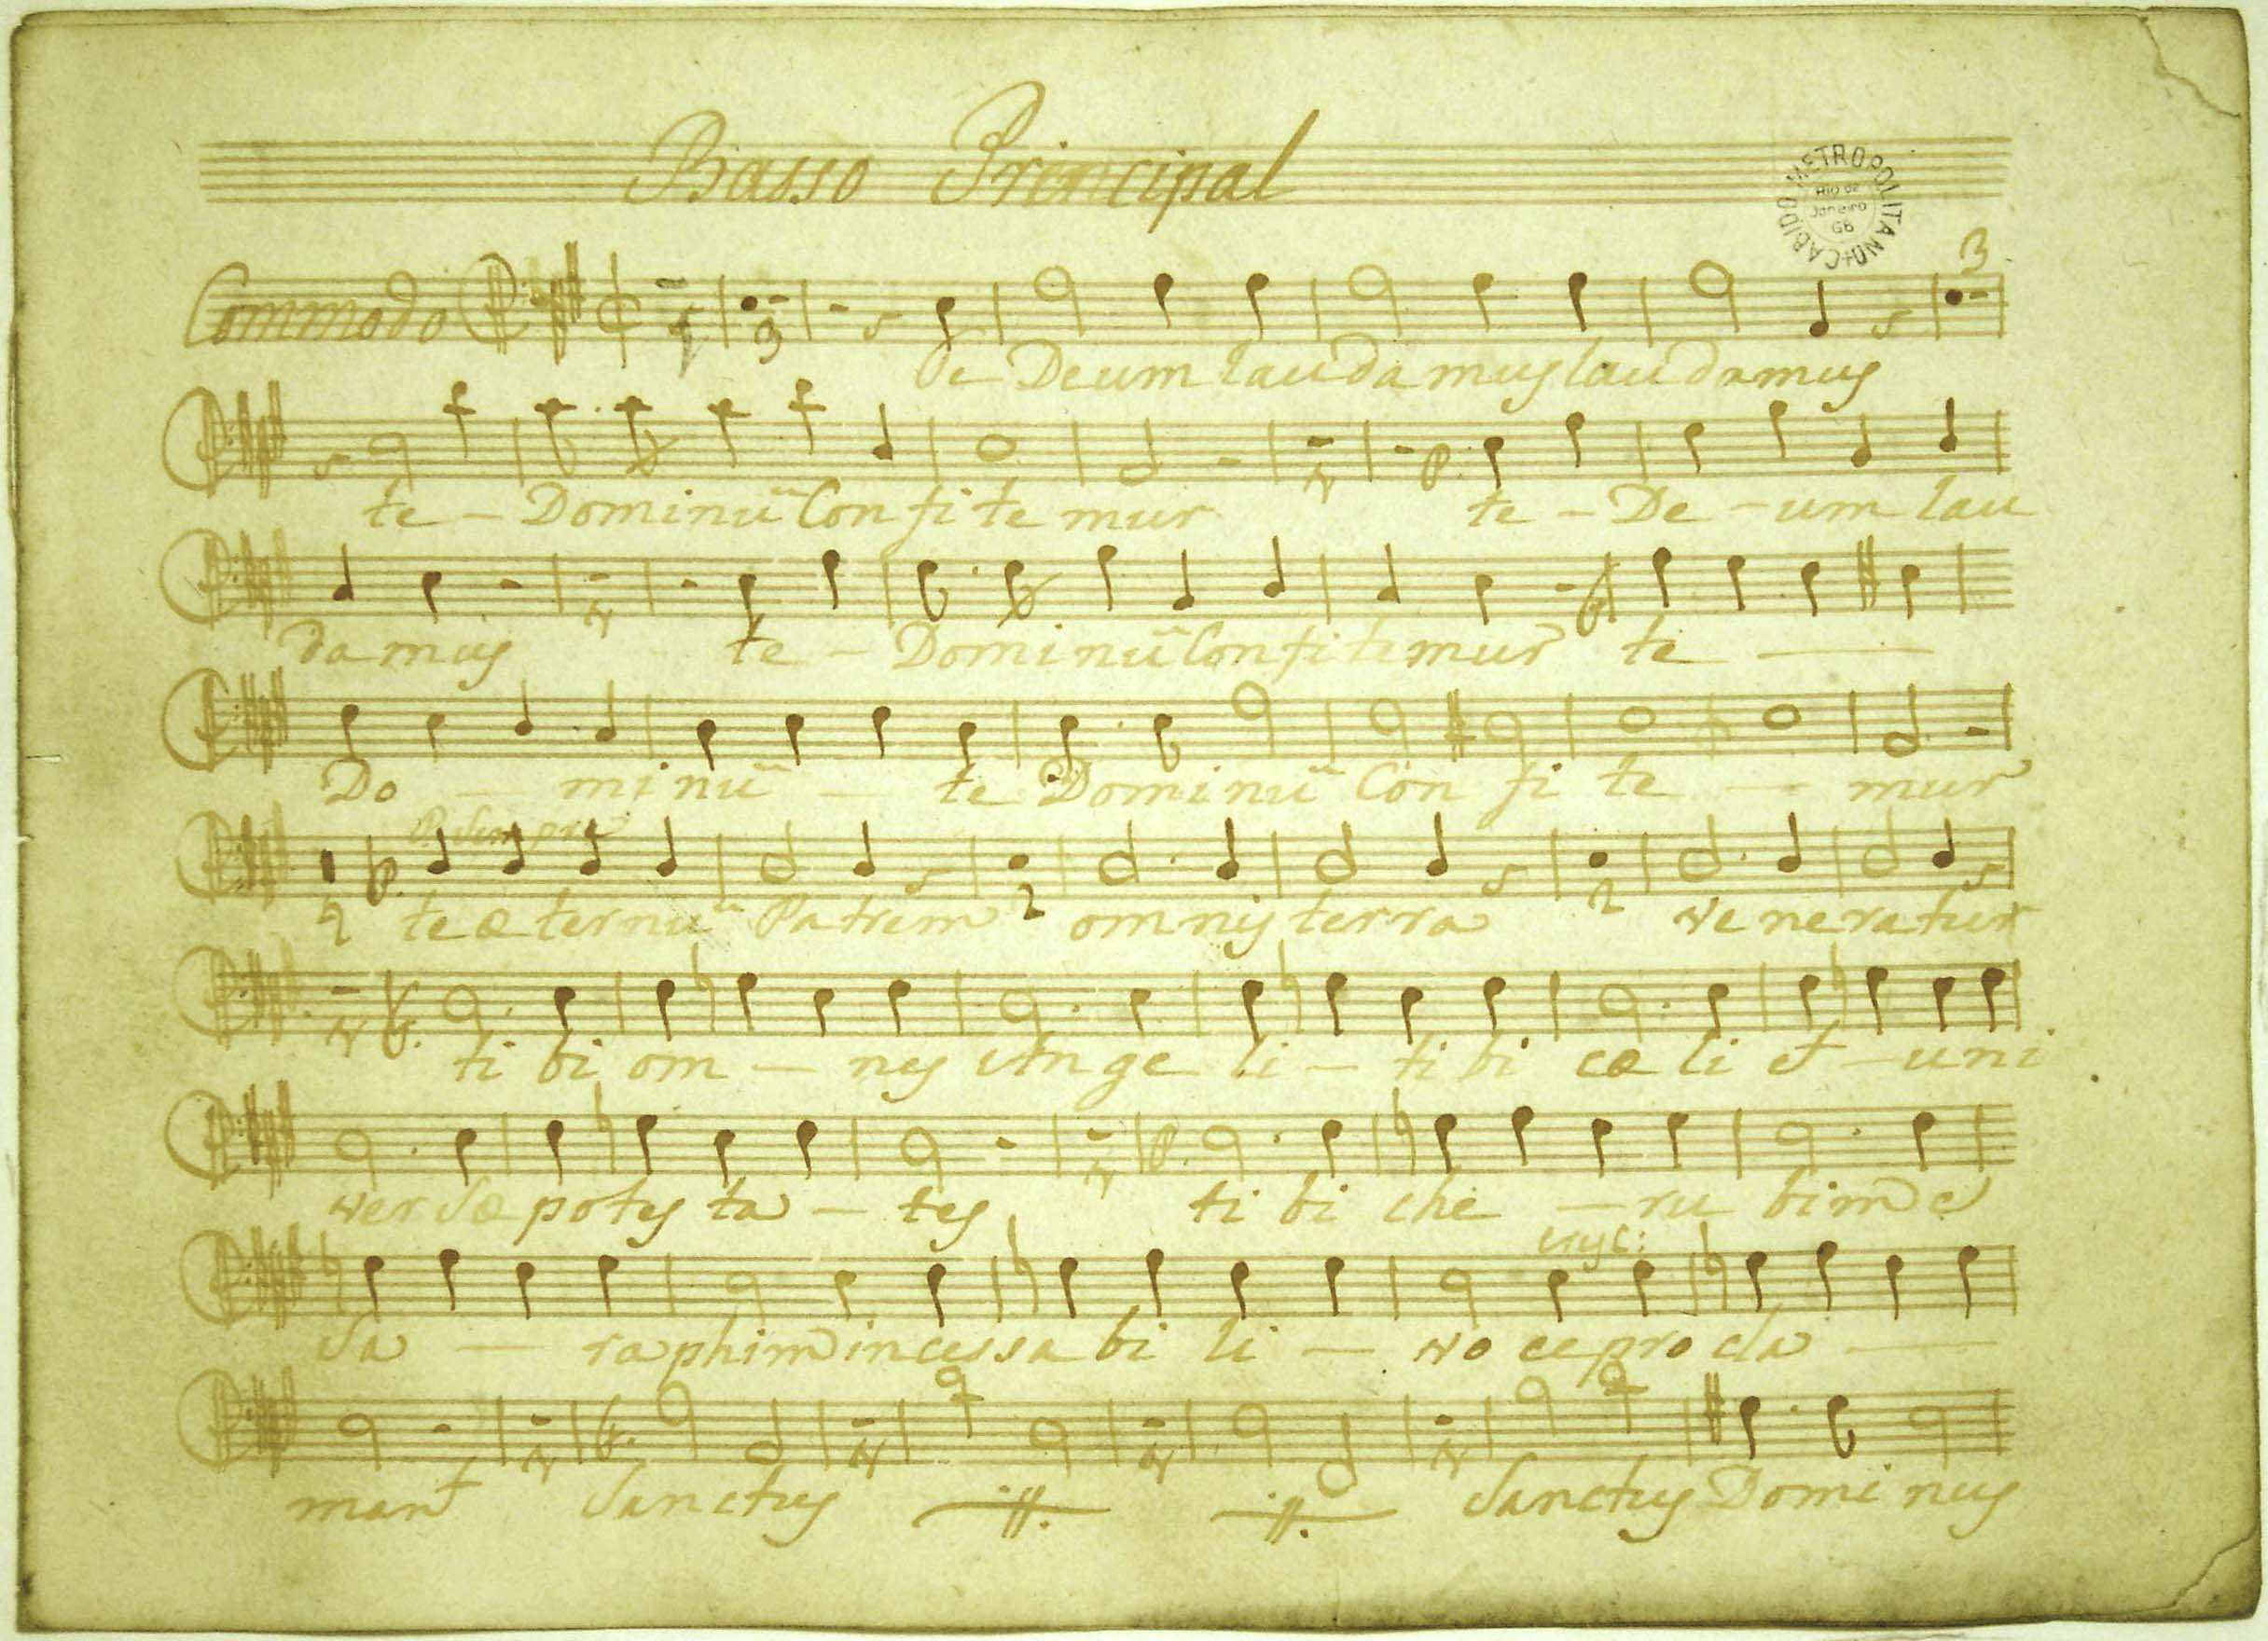 Basso Principal
CABIDO METROPOLITANO
Rio de Janeiro
GB
3
Commodo
3
Te Deum laudamus laudamus
te - Dominũ Confitemur te - De - um lau
damus te - Dominũ Confitemur te
Do - minũ - te Dominũ Confite - mur
P. Sempre
2 te æternũ Patrem 2 omnis terra 2 veneratur
tibi om - nes Ange li - tibi cæli et - uni
versæ potes ta - tes tibi che - rubim e
Sa - raphim incessa bili - vo ce procla
mant Sanctus Sanctus Dominus